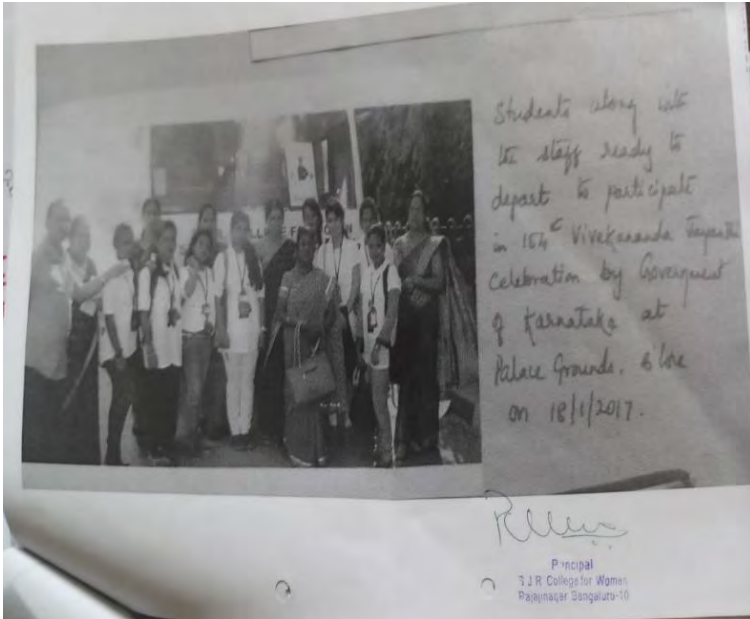 LLEGE F
Students along with
the staff ready to
depart to participate
in 154th Vivekananda Jayanthi
celebration by Government
of Karnataka at
Palace Grounds, B'lore
on 18/1/2017.
Principal
S J R College for Women
Rajajinagar Bengaluru-10